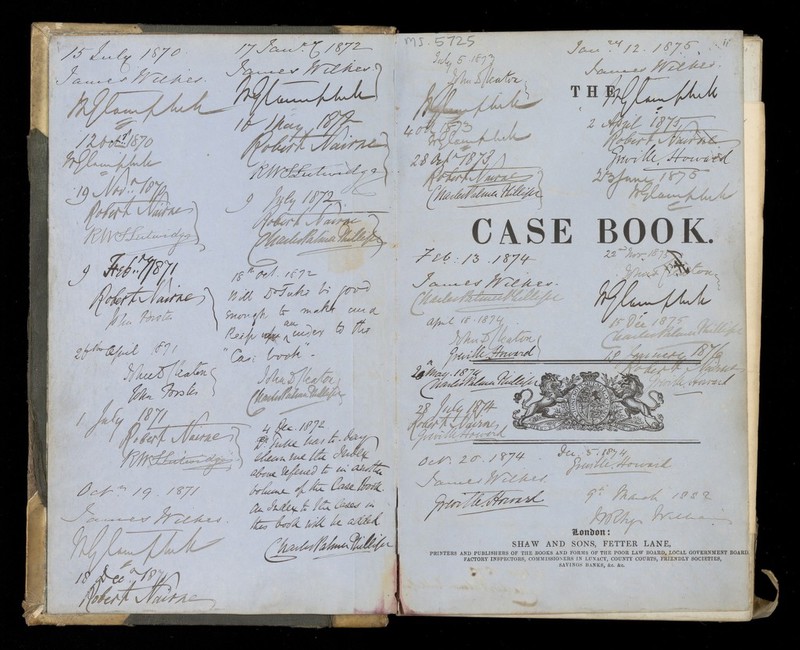 15 July 1870
James Wilkes.
W G Campbell
12 Oct 1870
W G Campbell
19 Nov. 187
Robert Nairne
R W S Lutwidge
9 Feb. 1871
Robert Nairne
John Forster
April 1871
John D Cleaton
John Forster
1. July 1871
Robert Nairne
R W S Lutwidge
Oct 19. 1871
James Wilkes.
W G Campbell
18 Dec 187
Robert Nairne
17 Jany 1872
James Wilkes
W G Campbell
16 May. 187
Robert Nairne
R W S Lutwidge
9 July 1872
Robert Nairne
Charles Palmer Phillips
18th Oct. 1872
Will Dr Tuke be good
enough to make and
keep an index to the
"Case book".
John D Cleaton
Charles Palmer Phillips
4 Dec. 1872
Dr Tuke has to-day
shewn me the Index
above referred to in another
volume of the Case Book.
An Index to the Cases in
this book will be added
Charles Palmer Phillips
MS. 5725
July 5 1873
John D Cleaton
W G Campbell
4 Oct 1873
W G Campbell
28 1873
Robert Nairne
Charles Palmer Phillips
Jany 12. 1875.
James Wilkes.
THE
W G Campbell
2 April 1875
Robert Nairne
Greville Howard
June 1875
W G Campbell
CASE BOOK.
Feb: 13. 1874
James Wilkes.
Charles Palmer Phillips
April 18. 1874
John D Cleaton
Greville Howard
May. 1874
Charles Palmer Phillips
28 July 1874
Robert Nairne
Greville Howard
Oct. 20. 1874
James Wilkes
Greville Howard
Nov. 1875
John D Cleaton
W G Campbell
15 Dec 1875
Charles Palmer Phillips
18 January 1876
Robert Nairne
Greville Howard
Dec. 5. 1874
Greville Howard
9th March 1882
London:
SHAW AND SONS, FETTER LANE,
PRINTERS AND PUBLISHERS OF THE BOOKS AND FORMS OF THE POOR LAW BOARD, LOCAL GOVERNMENT BOARD
FACTORY INSPECTORS, COMMISSIONERS IN LUNACY, COUNTY COURTS, FRIENDLY SOCIETIES,
SAVINGS BANKS, &c. &c.